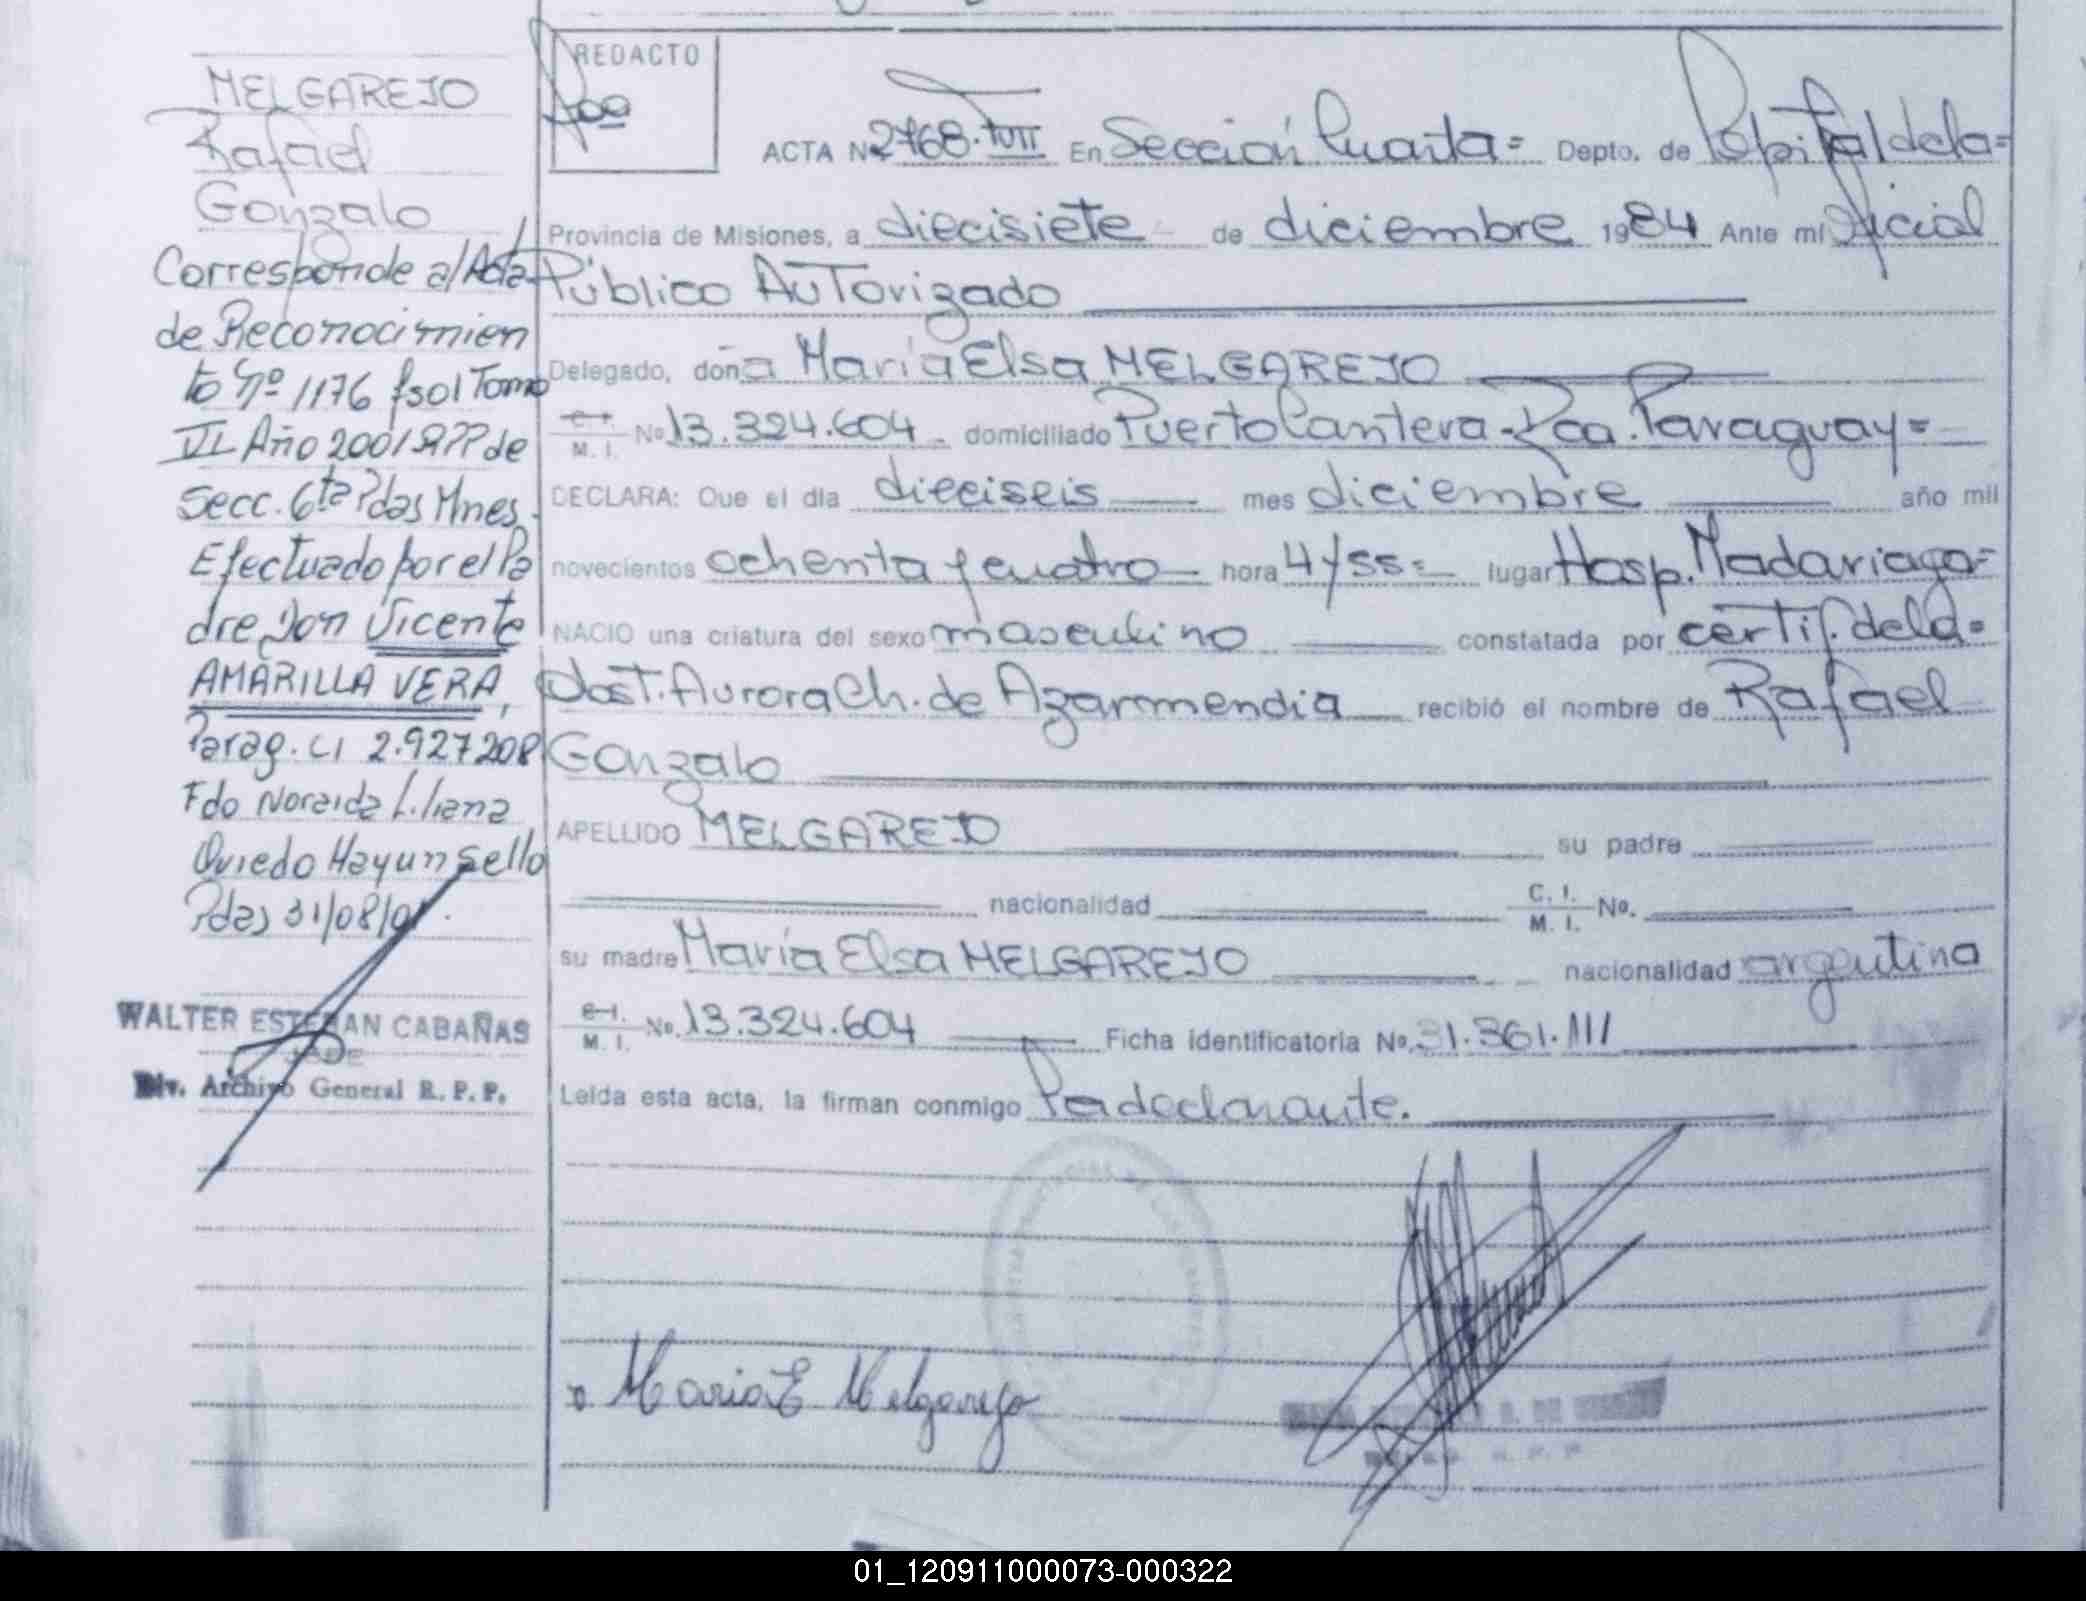 MELGAREJO
Rafael
Gonzalo
Corresponde a/Acta
de Reconocimien
to Nº 1176 fsol Tomo
VI Año 2001 RPP de
Secc. 6ta Pdas Mnes.
Efectuado por el Pa
dre Don Vicente
AMARILLA VERA,
Parag. CI 2.927208
Fdo Noraida Liliana
Oviedo Hay un Sello
Pdas 31/08/01.
WALTER ESTEBAN CABAÑAS
JEFE
Div. Archivo General R.P.P.
REDACTO
ACTA Nº 2768. En Sección Cuarta = Depto. de Capital de la =
Provincia de Misiones, a diecisiete de diciembre 1984 Ante mí Oficial
Público AuTorizado
Delegado, doña María Elsa MELGAREJO
C. I. M. I. Nº 13.324.604 domiciliado Puerto Cantera - Rca. Paraguay =
DECLARA: Que el día dieciseis mes diciembre año mil
novecientos ochenta y cuatro hora 4 y 55 = lugar Hosp. Madariaga =
NACIO una criatura del sexo masculino constatada por certif. de la =
obst. Aurora Ch. de Azarmendia recibió el nombre de Rafael
Gonzalo
APELLIDO MELGAREJO su padre
nacionalidad C. I. M. I. Nº.
su madre María Elsa MELGAREJO nacionalidad argentina
C. I. M. I. Nº. 13.324.604 Ficha identificatoria Nº. 31.361.111
Leída esta acta, la firman conmigo la declarante.
Maria E Melgarejo
01_120911000073-000322